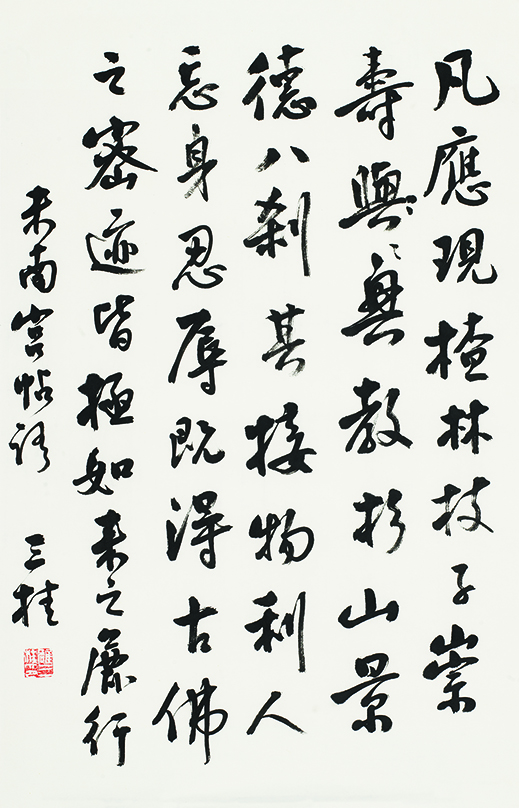 凡應現楂林枝子崇
壽興興教杉山景
德八剎其接物利人
忘身忍辱既得古佛
之密迹皆極如来之麤行
米南宮帖語 三桂